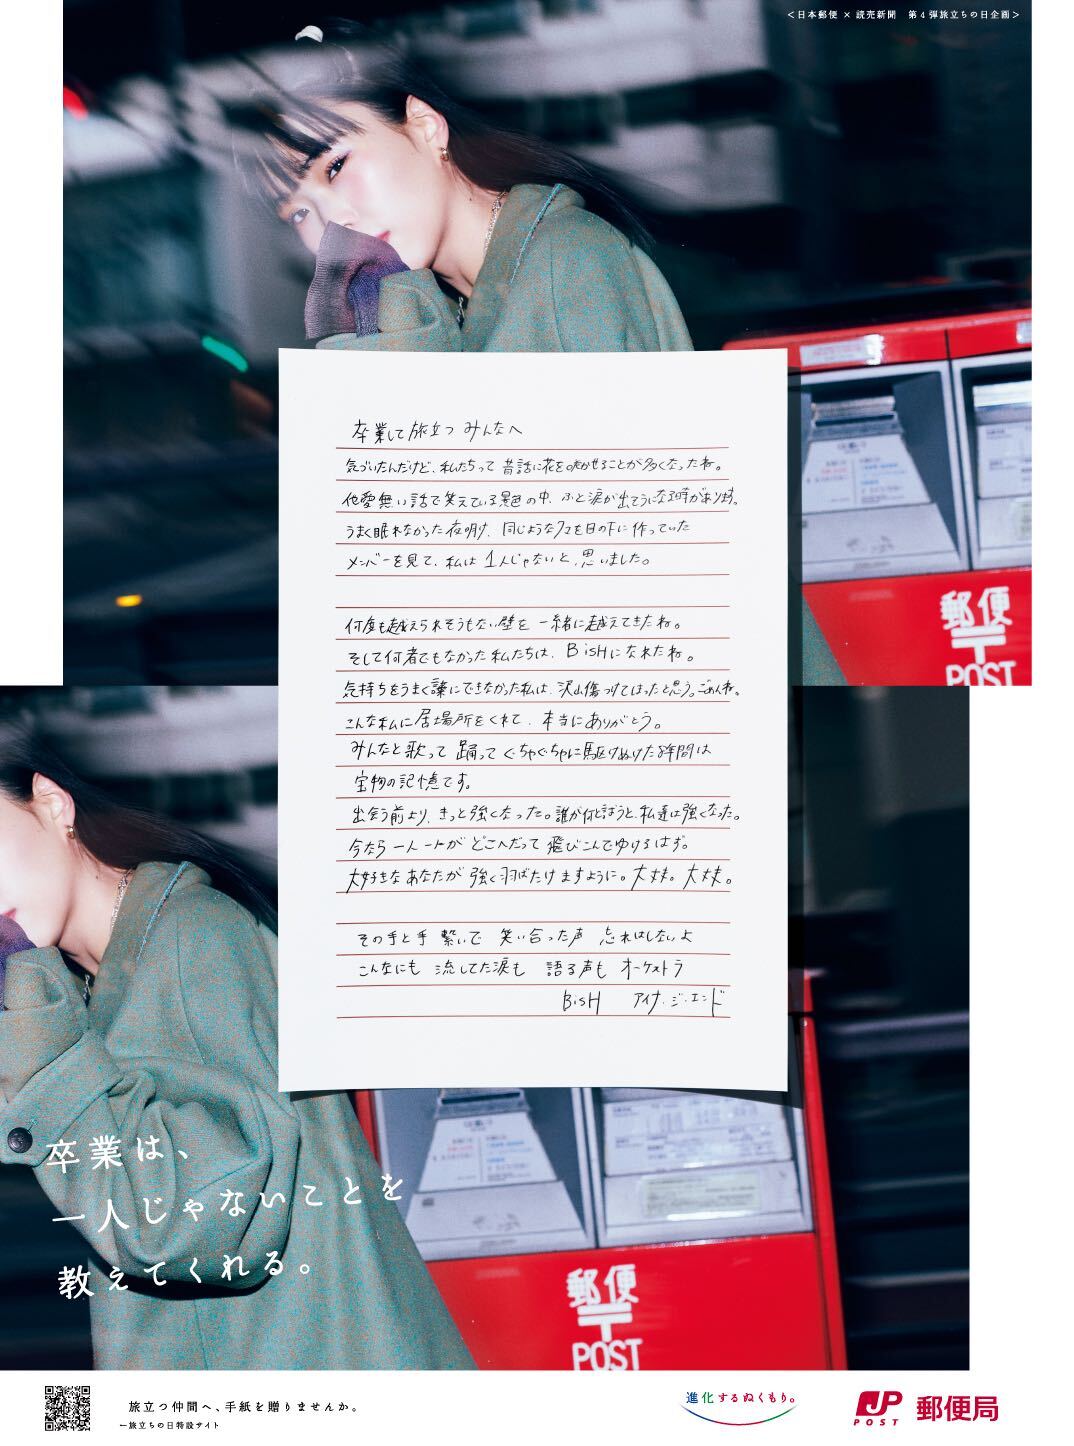 ＜日本郵便 × 読売新聞　第4弾旅立ちの日企画＞
卒業して旅立つ みんなへ
気づいたんだけど、私たちって 昔話に花を咲かせることが多くなったね。
他愛無い話で笑えている景色の中、ふと涙が出そうになる時があります。
うまく眠れなかった夜明け、同じようなクマを目の下に作っていた
メンバーを見て、私は1人じゃないと、思いました。
何度も越えられそうもない壁を 一緒に越えてきたね。
そして何者でもなかった私たちは、BiSHになれたね。
気持ちをうまく言葉にできなかった私は、沢山傷つけてしまったと思う。ごめんね。
こんな私に居場所をくれて、本当にありがとう。
みんなと歌って 踊って ぐちゃぐちゃに駆けぬけた8年間は
宝物の記憶です。
出会う前より、きっと強くなった。誰が何と言おうと、私達は強くなった。
今なら 一人一人が どこへだって 飛びこんでゆけるはず。
大好きな あなたが 強く羽ばたけますように。大丈夫。大丈夫。
その手と手 繋いで 笑い合った声 忘れはしないよ
こんなにも 流してた涙も 語る声も オーケストラ
BiSH アイナ・ジ・エンド
郵便
POST
卒業は、
一人じゃないことを
教えてくれる。
郵便
POST
旅立つ仲間へ、手紙を贈りませんか。
←旅立ちの日特設サイト
進化するぬくもり。
JP
POST
郵便局